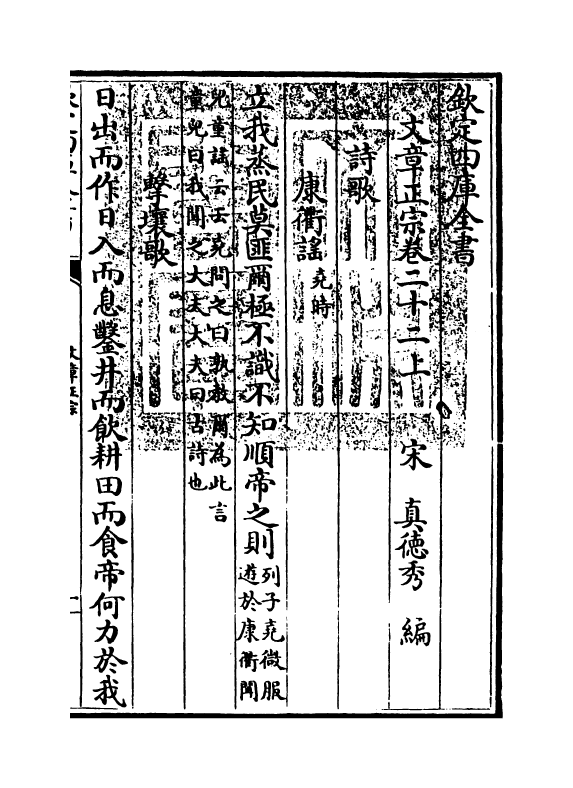 欽定四庫全書
文章正宗卷二十二上　宋　真德秀　編
詩歌
康衢謠堯時
立我蒸民莫匪爾極不識不知順帝之則列子堯微服
遊於康衢聞
兒童謠云云堯問之曰孰教爾為此言
童兒曰我聞之大夫大夫曰古詩也
擊壤歌
日出而作日入而息鑿井而飲耕田而食帝何力於我
文章正宗